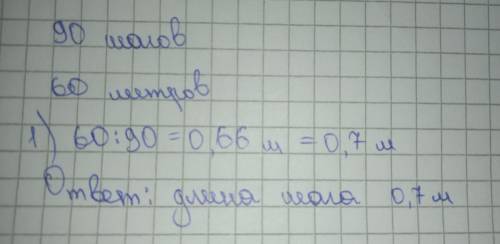 90 шагов
60 метров
1) 60:90 = 0,66 м = 0,7 м
Ответ: длина шага 0,7 м